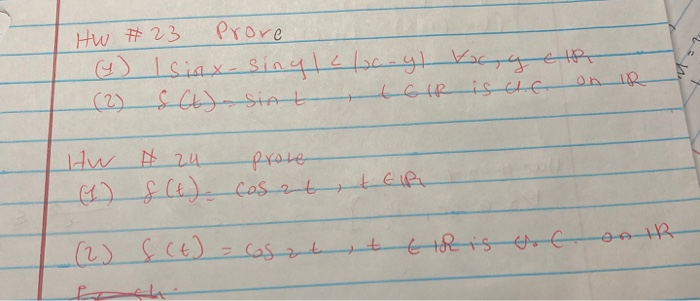 HW # 23 Prove
(1) |sinx - siny| ≤ |x-y| ∀x, y ∈ IR
(2) f(t) = sin t , t ∈ IR is u.c. on IR
HW # 24 prove
(1) f(t) = cos 2t , t ∈ IR
(2) f(t) = cos 2t , t ∈ IR is u.c. on IR